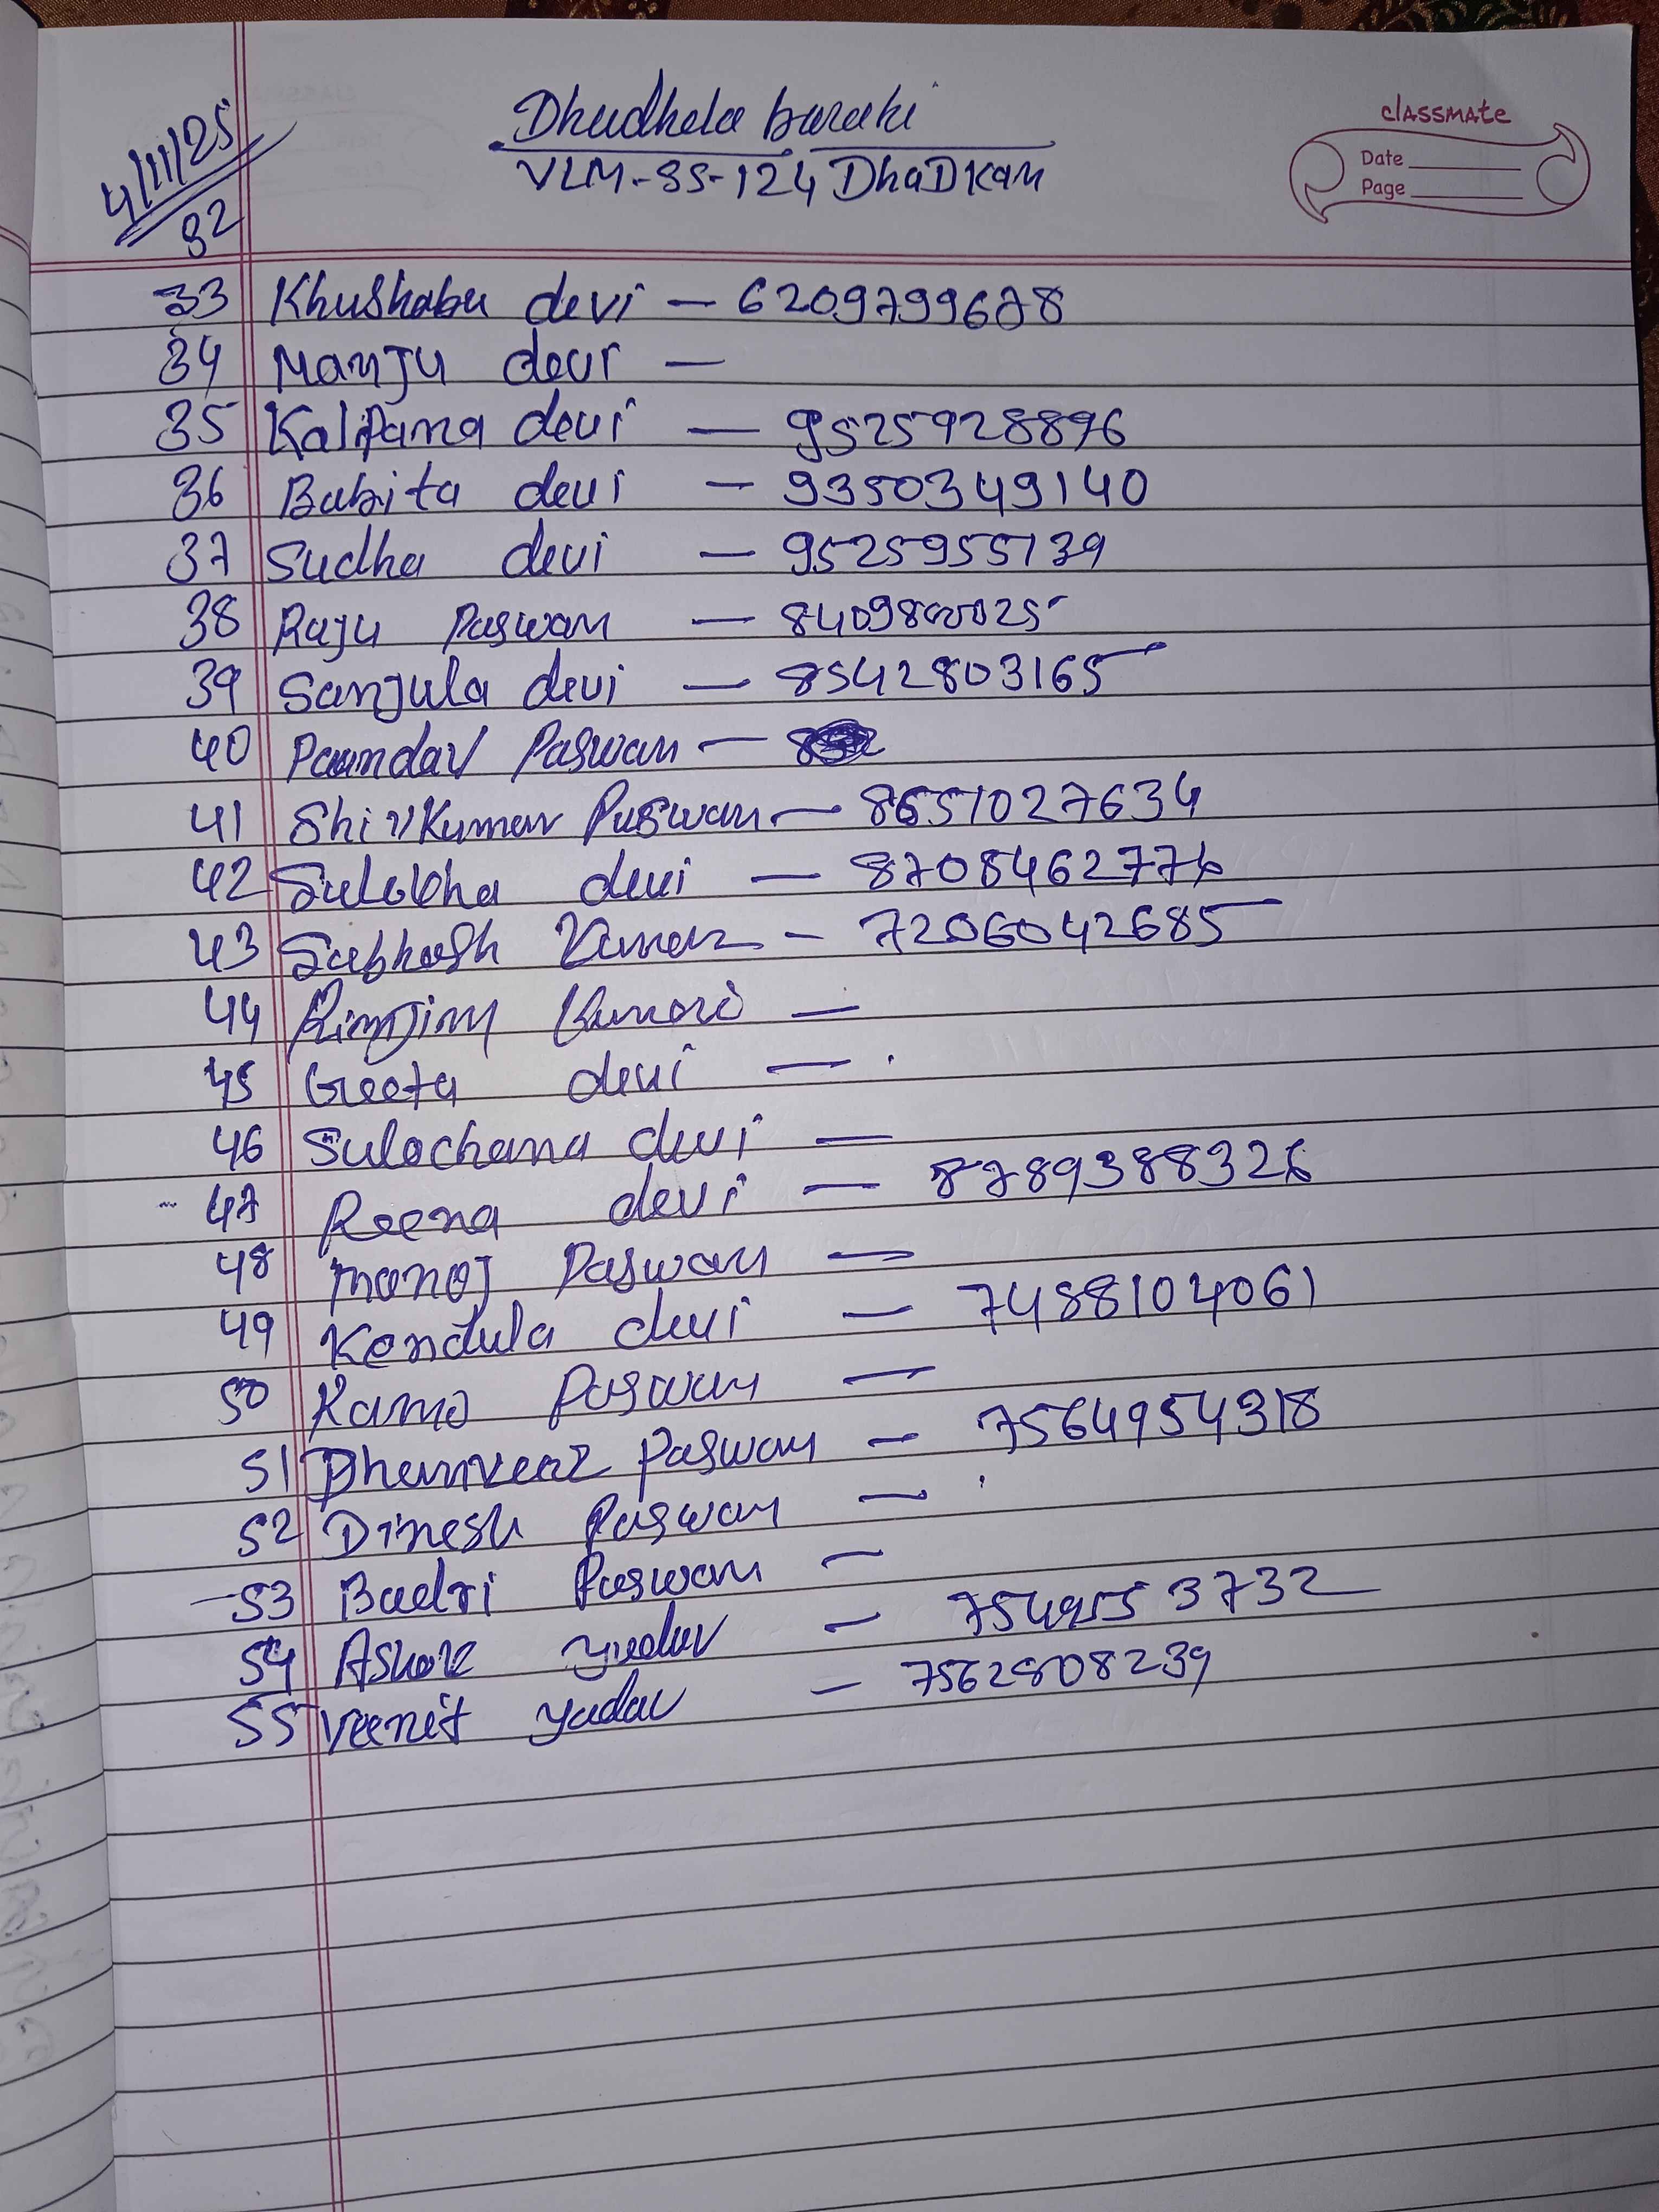 classmate
Date
Page
4/11/25
32
Dhudhela baraki
VLM-SS-124 DhaDKam
33 Khushabu devi - 6209799678
34 Manju devi -
35 Kalpana devi - 9525928896
36 Babita devi - 9350349140
37 Sudha devi - 9525955139
38 Raju Paswan -
39 Sanjula devi - 8542803165
40 Paswan -
41 Shivkumar Paswan - 8651027634
42 devi -
43 Subhash Kumar - 7206042685
44 Rimjim Kumari -
45 Geeta devi -
46 Sulochana devi -
47 Reena devi - 8789388326
48 manoj Paswan -
49 Kendula devi - 7488104061
50 Paswan -
51 Paswan - 7564954318
52 Dinesh Paswan -
53 Badri Paswan -
54 Ashok yadav -
55 Veenit yadav - 7562808239